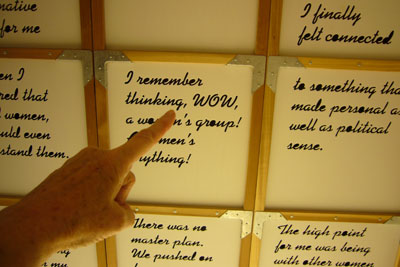 for me
I finally
felt connected
I
that
women,
even
them.
I remember
thinking, WOW,
a women's group!
Women's
anything!
to something that
made personal as
well as political
sense.
my
There was no
master plan.
We pushed on
The high point
for me was being
with other women